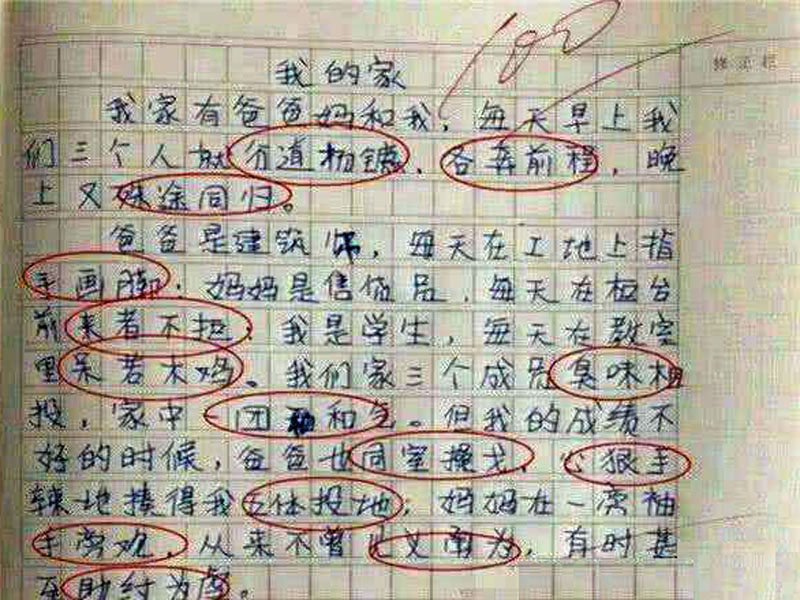 100
修正栏
我的家
我家有爸爸妈和我,每天早上我
们三个人就分道扬镳,各奔前程,晚
上又殊途同归。
爸爸是建筑师,每天在工地上指
手画脚;妈妈是售货员,每天在柜台
前来者不拒;我是学生,每天在教室
里呆若木鸡。我们家三个成员臭味相
投,家中一团和气。但我的成绩不
好的时候,爸爸也同室操戈,心狠手
辣地揍得我五体投地;妈妈在一旁袖
手旁观,从来不曾见义勇为,有时甚
至助纣为虐。